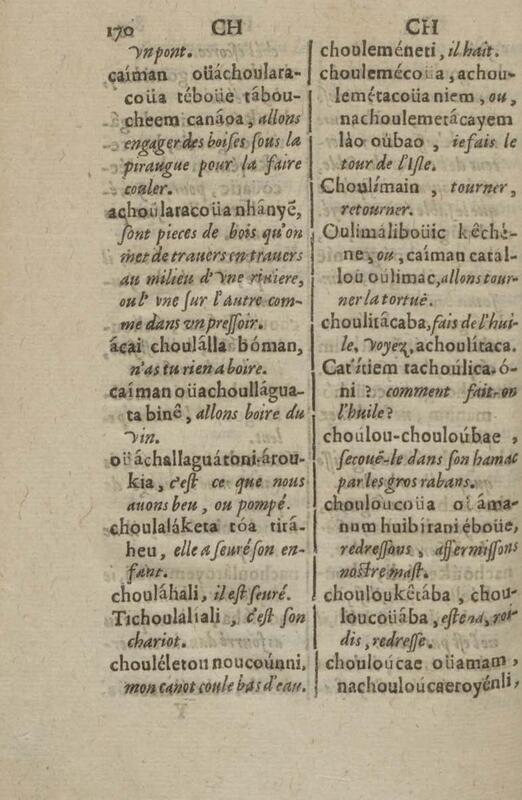 170 CH CH
vn pont.
caíman oüáchoulara-
coüa téboüe tábou-
cheem canáoa, allons
engager des boises ſous la
piraugue pour la faire
couler.
achoúlaracoüa nhányẽ,
ſont pieces de bois qu'on
met de trauers en trauers
au milieu d'vne riuiere,
ou l'vne ſur l'autre com-
me dans vn preſſoir.
ácai choulálla bóman,
n'as tu rien a boire.
caíman oüachoullágua-
ta binê, allons boire du
vin.
oüáchallaguátoni-árou-
kia, c'eſt ce que nous
auons beu, ou pompé.
choulaláketa tóa tirá-
heu, elle a ſeuré ſon en-
fant.
chouláhali, il eſt ſeuré.
Tichoulálíali, c'eſt ſon
chariot.
chouléletou noucoúnni,
mon canot coule bas d'eau.
chouleméneti, il haït.
choulemécoüa, achou-
lemétacoüa niem, ou,
nachoulemetácayem
láo oúbao, ie fais le
tour de l'Iſle.
Choulímain, tourner,
retourner.
Oulimáliboüic kêché-
ne, ou, caíman catal-
lou oúlimac, allons tour-
ner la tortuë.
choulitácaba, fais de l'hui-
le. Voyez, achoulítaca.
Cat'itiem tachoúlica.ó-
ni? comment fait-on
l'huile?
choúlou-chouloúbae,
ſecouë-le dans ſon hamac
par les gros rabans.
chouloucoüa oüáma-
num huibírani éboüe,
redreſſons, affermiſſons
noſtre maſt.
chouloukêtába, chou-
loucoüába, eſtend, roi-
dis, redreſſe.
chouloúcae oüamam,
nachouloúcaeroyénli,